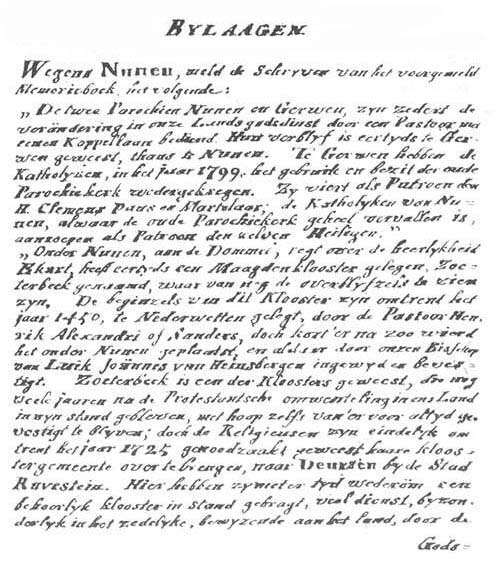 BYLAAGEN.
Wegens Nunen, meld de Schryver van het voorgemeld
Memorieboek, het volgende:
„De twee Parochien Nunen en Gerwen, zyn zedert de
verändering in onze Lands godsdinst door een Pastoor met
eenen Kappellaan bediend. Hun verblyf is eertyds te Ger-
wen geweest, thans te Nunen. Te Gerwen hebben de
Katholyken, in het jaar 1799. het gebruik en bezit der oude
Parochiekerk wedergekregen. Zy viert als Patroon den
H. Clemens Paus en Martelaar; de Katholyken van Nu-
nen, alwaar de oude Parochiekerk geheel vervallen is,
aanroepen als Patroon den zelven Heiligen."
„Onder Nunen, aan de Dommel, regt over de Heerlykheid
Ekart, heeft eertyds een Maagdenklooster gelegen, Zoe-
terbeek genaamd, waar van nog de overblyfzels te zien
zyn. De beginzels van dit Klooster zyn omtrent het
jaar 1450, te Nederwetten gelegt, door de Pastoor Hen-
rik Alexandri of Sanders, doch kort er na zoo wierd
het onder Nunen geplaatst, en aldaar door onzen Bisschop
van Luik Joännes van Heinsbergen ingewyd en beves-
tigt. Zoeterbeek is een der Kloosters geweest, die nog
veele jaaren na de Protestantsche omwenteling in ens Land
in zyn stand gebleven, met hoop zelfs van er voor altyd ge-
vestigt te blyven; doch de Religieusen zyn eindelyk om
trent het jaar 1725 genoodzaakt geweest haare kloos-
tergemeente over te brengen, naar Deursen by de Stad
Ravestein. Hier hebben zy met er tyd wederöm een
behoorlyk klooster in stand gebragt, veel dienst, byzon-
derlyk in het zedelyke, bewyzende aan het land, door de
Gods=